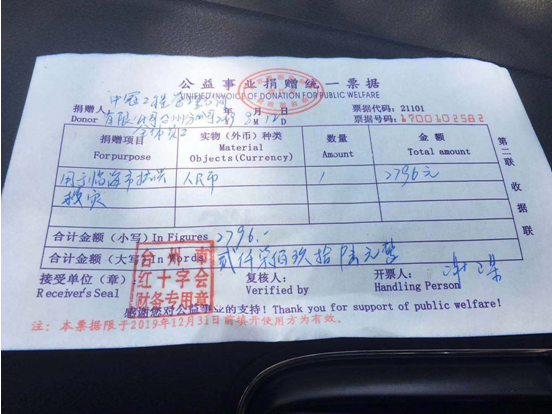 公益事业捐赠统一票据
UNIFIED INVOICE OF DONATION FOR PUBLIC WELFARE
捐赠人 中冠工程管理咨询
Donor 有限公司台州分公司
年 月 日
Y M D
票据代码: 21101
票据号码: 4700102582
全体员工
捐赠项目 For purpose
实物(外币)种类 Material Objects(Currency)
数量 Amount
金额 Total amount
用于临海市抗洪 人民币 1 2796元
救灾
合计金额(小写)In Figures 2796.-
合计金额(大写)In Words 贰仟柒佰玖拾陆元整
接受单位(章):
Receiver's Seal
复核人:
Verified by
开票人:
Handling Person
台州市
红十字会
财务专用章
感谢您对公益事业的支持! Thank you for support of public welfare!
注: 本票据限于2019年12月31日前填开使用方为有效。
第二联 收据联